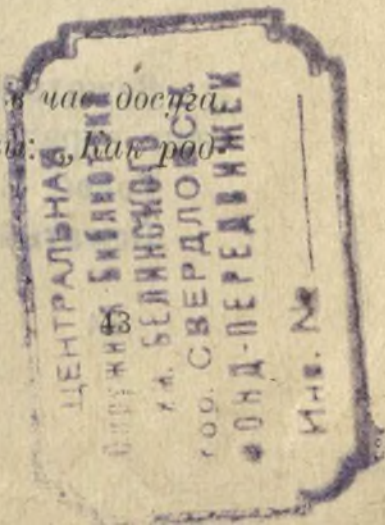 в час досуга,
Как род-
43
ЦЕНТРАЛЬНАЯ
Окружная Библиотека
им. БЕЛИНСКОГО
гор. СВЕРДЛОВСК
ФОНД-ПЕРЕДВИЖЕК
Инв. №